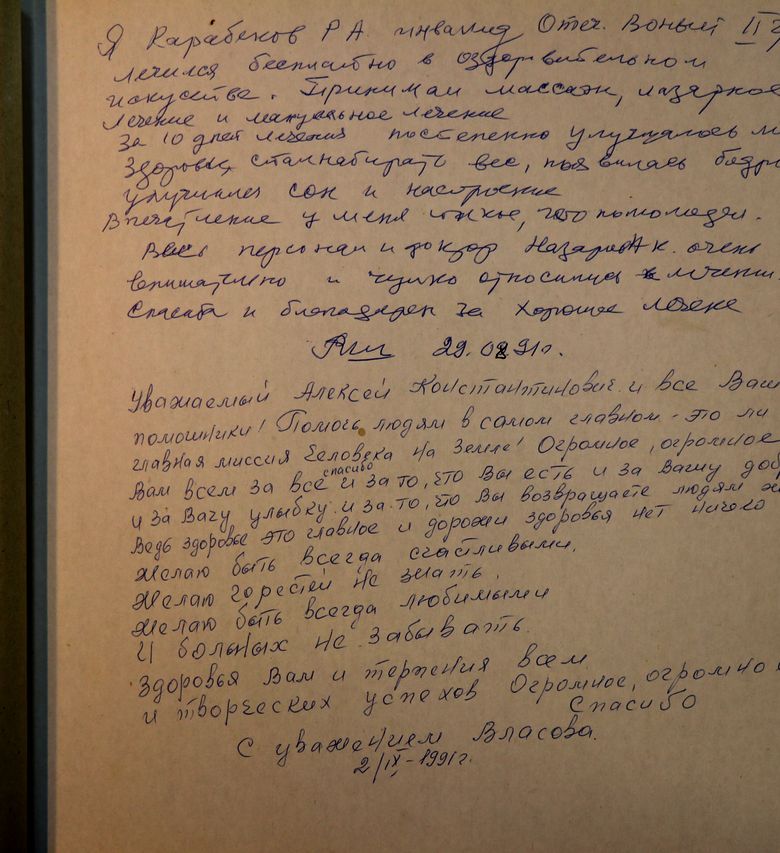 Я Карабеков Р А. инвалид Отеч. Воный II г
лечился бесплатно в оздорвительном
искустве. Принимал массаж, лазярное
лечение и мануальное лечение
За 10 дней лечения постепенно улучшалось м
здоровье, стал набирать вес, появилась бодр
улучшился сон и настроение
Впечатление у меня такое, что помолодел.
Весь персонал и доктор Назаров А к. очень
внимателно и чутко относились к лечени
Спасиба и благодарен за хорошее лечене
29.08 91г.
Уважаемый Алексей Константинович и все Ваш
помошники! Помочь людям в самом главном - это ли
главная миссия человека на Земле! Огромное, огромное
спасибо
Вам всем за все и за то, что Вы есть и за Вашу добр
и за Вашу улыбку и за то, что Вы возвращаете людям ж
Ведь здоровье это главное и дорожи здоровья нет ничего
Желаю быть всегда счастливыми,
Желаю горестей не знать,
Желаю быть всегда любимыми
И больных не забывать.
Здоровья Вам и терпения всем
и творческих успехов Огромное, огромно
Спасибо
С уважением Власова.
2/IX-1991г.